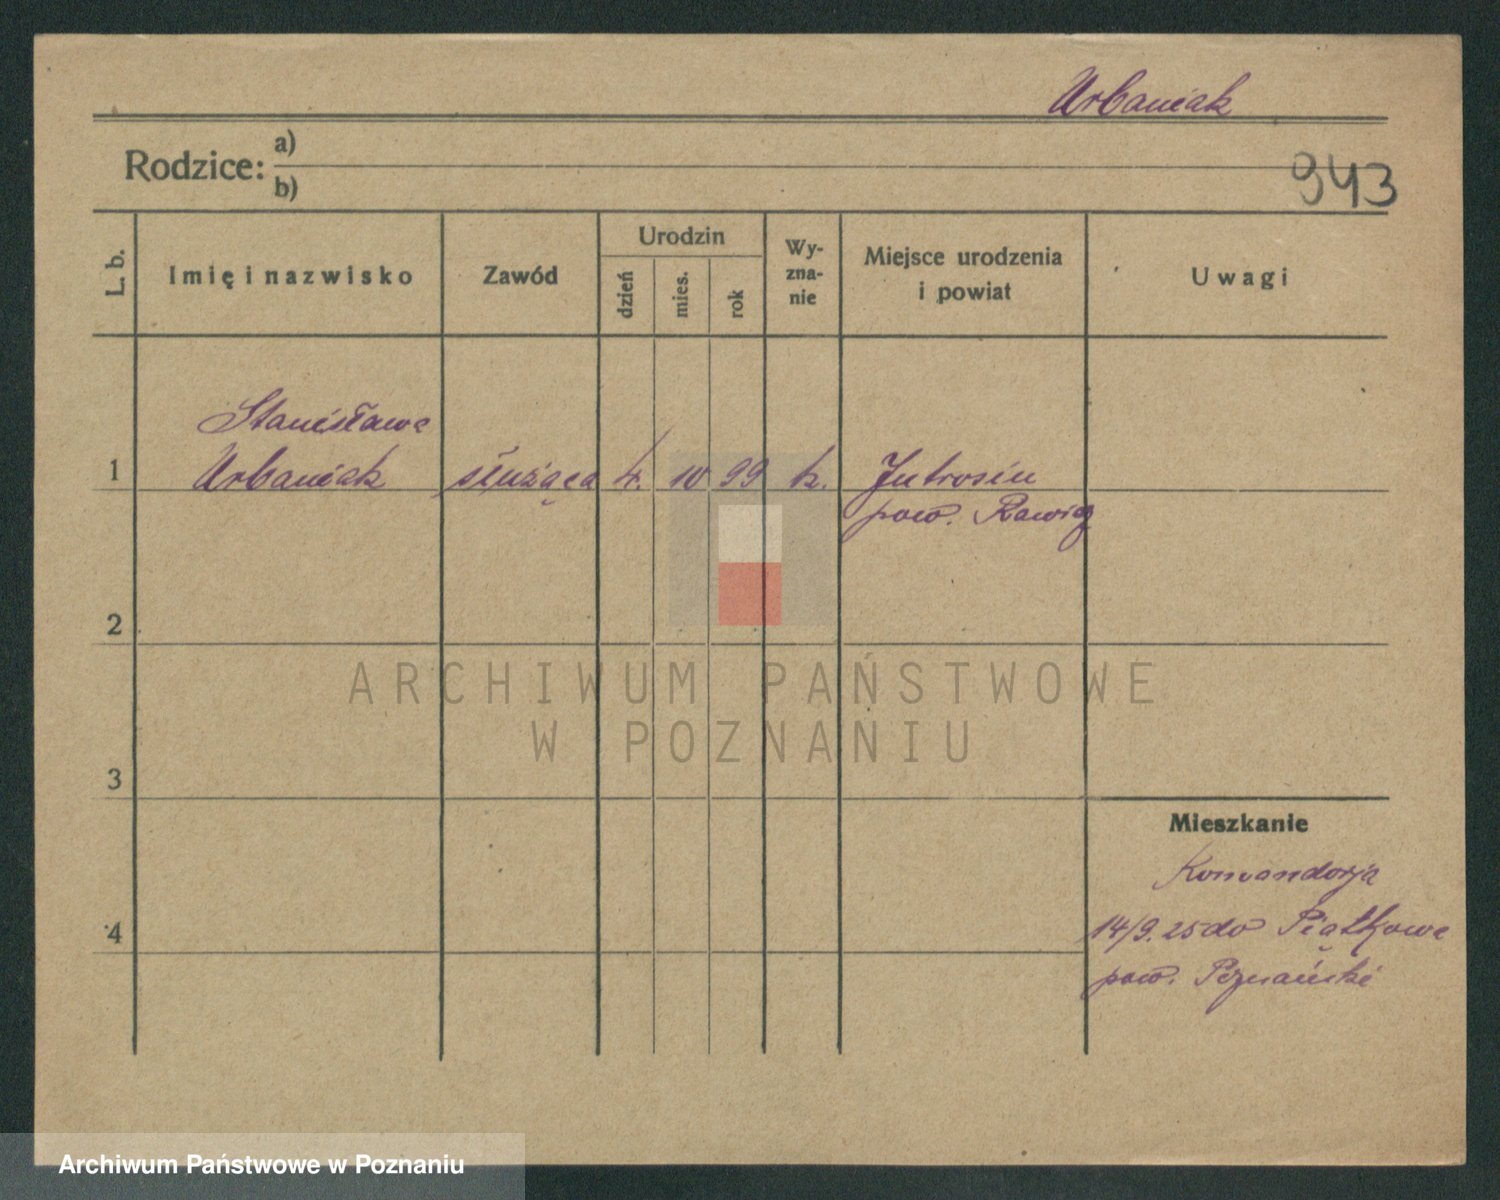 Urbaniak
Rodzice: a)
b)
943
L. b.
Imię i nazwisko
Zawód
Urodzin
dzień
mies.
rok
Wy-
zna-
nie
Miejsce urodzenia
i powiat
Uwagi
Stanisława
1 Urbaniak służąca 4. 10 99 k. Jutrosin
pow. Rawicz
2
ARCHIWUM PAŃSTWOWE
W POZNANIU
3
Mieszkanie
Komandorja
4 14/9. 25 do Piątkowa
pow. Poznański
Archiwum Państwowe w Poznaniu